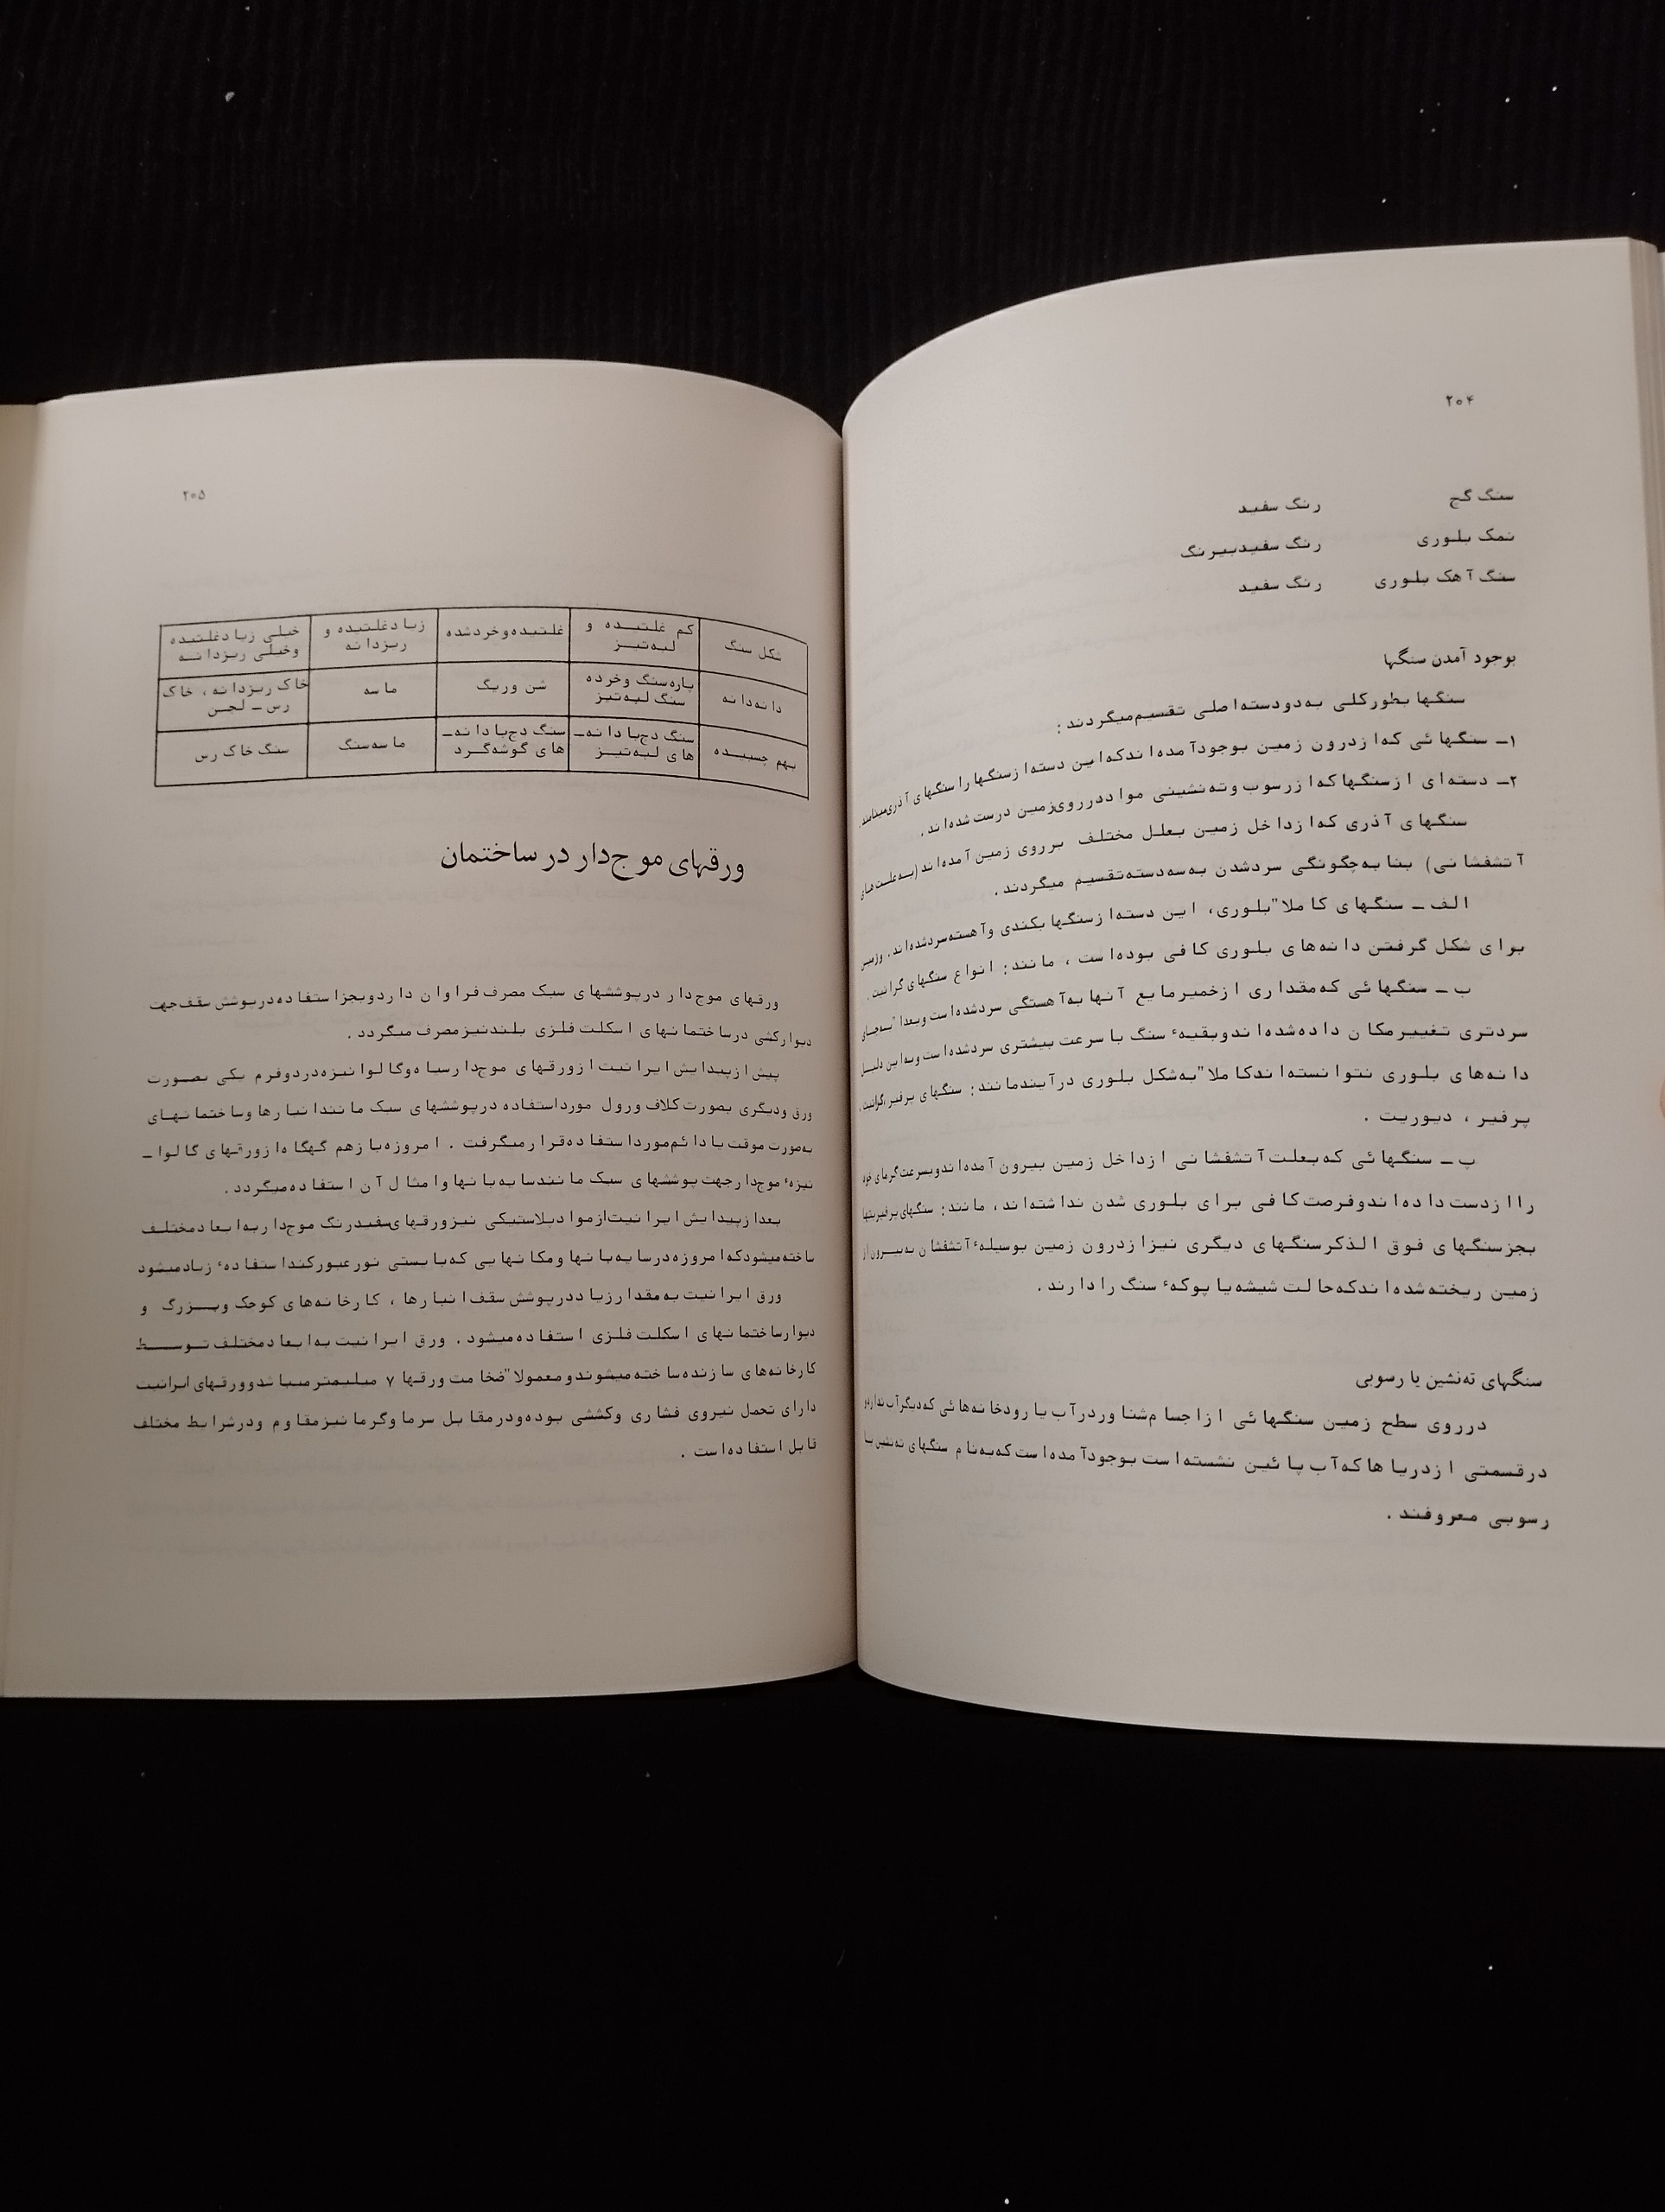 ۲۰۴
سنگ گچ رنگ سفید
نمک بلوری رنگ سفیدبیرنگ
سنگ آهک بلوری رنگ سفید
بوجود آمدن سنگها
سنگها بطورکلی به‌دودسته‌اصلی تقسیم‌میگردند :
۱ــ سنگهائی که‌ازدرون زمین بوجودآمده‌اندکه‌این دسته‌ازسنگها را سنگهای آذری‌مینامند .
۲ــ دسته‌ای ازسنگهاکه‌ازرسوب وته‌نشینی مواددرروی‌زمین درست شده‌اند .
سنگهای آذری که‌ازداخل زمین بعلل مختلف برروی زمین آمده‌اند (به‌علت‌های
آتشفشانی) بنابه‌چگونگی سردشدن به‌سه‌دسته‌تقسیم میگردند .
الف ــ سنگهای کاملا"بلوری، این دسته‌ازسنگها بکندی وآهسته‌سردشده‌اند .
برای شکل گرفتن دانه‌های بلوری کافی بوده‌است ، مانند: انواع سنگهای گرانیت .
ب ــ سنگهائی که‌مقداری ازخمیرمایع آنها به‌آهستگی سردشده‌است وبعدا "به‌جای
سردتری تغییرمکان داده‌شده‌اندوبقیهء سنگ با سرعت بیشتری سردشده‌است وبه‌این دلیل
دانه‌های بلوری نتوانسته‌اندکاملا"به‌شکل بلوری درآیندمانند: سنگهای پرفیر،گرانیت،
پرفیر ، دیوریت .
پ ــ سنگهائی که‌بعلت‌آتشفشانی ازداخل زمین بیرون آمده‌اندوبسرعت‌گرمای خود
راازدست داده‌اندوفرصت‌کافی برای بلوری شدن نداشته‌اند، مانند: سنگهای
بجزسنگهای فوق الذکرسنگهای دیگری نیزازدرون زمین بوسیلهء آتشفشان به‌بیرون از
زمین ریخته‌شده‌اندکه‌حالت شیشه‌یا پوکهء سنگ را دارند .
سنگهای ته‌نشین یا رسوبی
درروی سطح زمین سنگهائی ازاجسام‌شناوردرآب یا رودخانه‌هائی که‌دیگرآب
درقسمتی ازدریاهاکه‌آب پائین نشسته‌است بوجودآمده‌است‌که‌به‌نام سنگهای ته‌نشین یا
رسوبی معروفند .
۲۰۵
شکل سنگ کم غلتیده و لبه‌تیز غلتیده‌وخردشده زیادغلتیده و ریزدانه خیلی زیادغلتیده وخیلی ریزدانه
دانه‌دانه پاره‌سنگ وخرده سنگ لبه‌تیز شن وریگ ماسه خاک ریزدانه ، خاک رس ــ لجن
بهم چسبیده سنگ دج‌با دانه‌ــ های لبه‌تیز سنگ دج‌با دانه‌ــ های گوشه‌گرد ماسه‌سنگ سنگ خاک رس
ورقهای موج‌دار در ساختمان
ورقهای موج‌دار درپوششهای سبک مصرف‌فراوان داردوبجزاستفاده‌درپوشش سقف‌جهت
دیوارکشی درساختمانهای اسکلت فلزی بلندنیزمصرف میگردد .
پیش ازپیدایش ایرانیت ازورقهای موج‌دارسیاه‌وگالوانیزه‌دردوفرم یکی بصورت
ورق ودیگری بصورت‌کلاف ورول مورداستفاده درپوششهای سبک ماننداانبارها وساختمانهای
به‌صورت موقت یادائم‌مورداستفاده‌قرارمیگرفت . امروزه‌بازهم گهگاه‌ازورقهای گالوا ــ
نیزهء موج‌دارجهت پوششهای سبک مانندسایه‌بانهاوامثال آن استفاده‌میگردد .
بعدازپیدایش ایرانیت‌ازموادپلاستیکی نیزورقهای‌سفیدرنگ موج‌داربه‌ابعادمختلف
ساخته‌میشودکه‌امروزه‌درسایه‌بانهاومکانهایی که‌بایستی نورعبورکنداستفادهء زیادمیشود
ورق ایرانیت به‌مقدارزیاددرپوشش سقف‌انبارها ، کارخانه‌های کوچک وبزرگ و
دیوارساختمانهای اسکلت فلزی استفاده‌میشود . ورق ایرانیت به‌ابعادمختلف توسط
کارخانه‌های سازنده‌ساخته‌میشوندومعمولا"ضخامت ورقها ۷ میلیمترمیباشدوورقهای ایرانیت
دارای تحمل نیروی فشاری وکششی بوده‌ودرمقابل سرماوگرمانیزمقاوم ودرشرایط مختلف
قابل استفاده‌است .